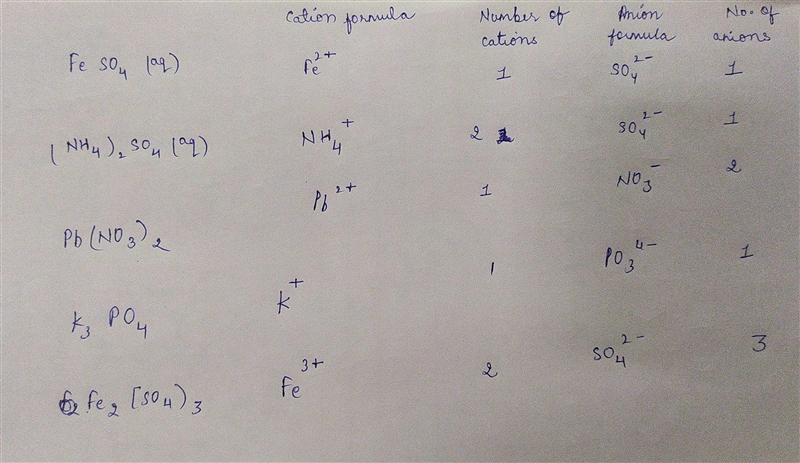 Cation formula Number of cations Anion formula No. of anions
Fe SO₄ (aq) Fe²⁺ 1 SO₄²⁻ 1
(NH₄)₂ SO₄ (aq) NH₄⁺ 2 SO₄²⁻ 1
Pb(NO₃)₂ Pb²⁺ 1 NO₃⁻ 2
K₃ PO₄ K⁺ 1 PO₃⁴⁻ 1
Fe₂ (SO₄)₃ Fe³⁺ 2 SO₄²⁻ 3